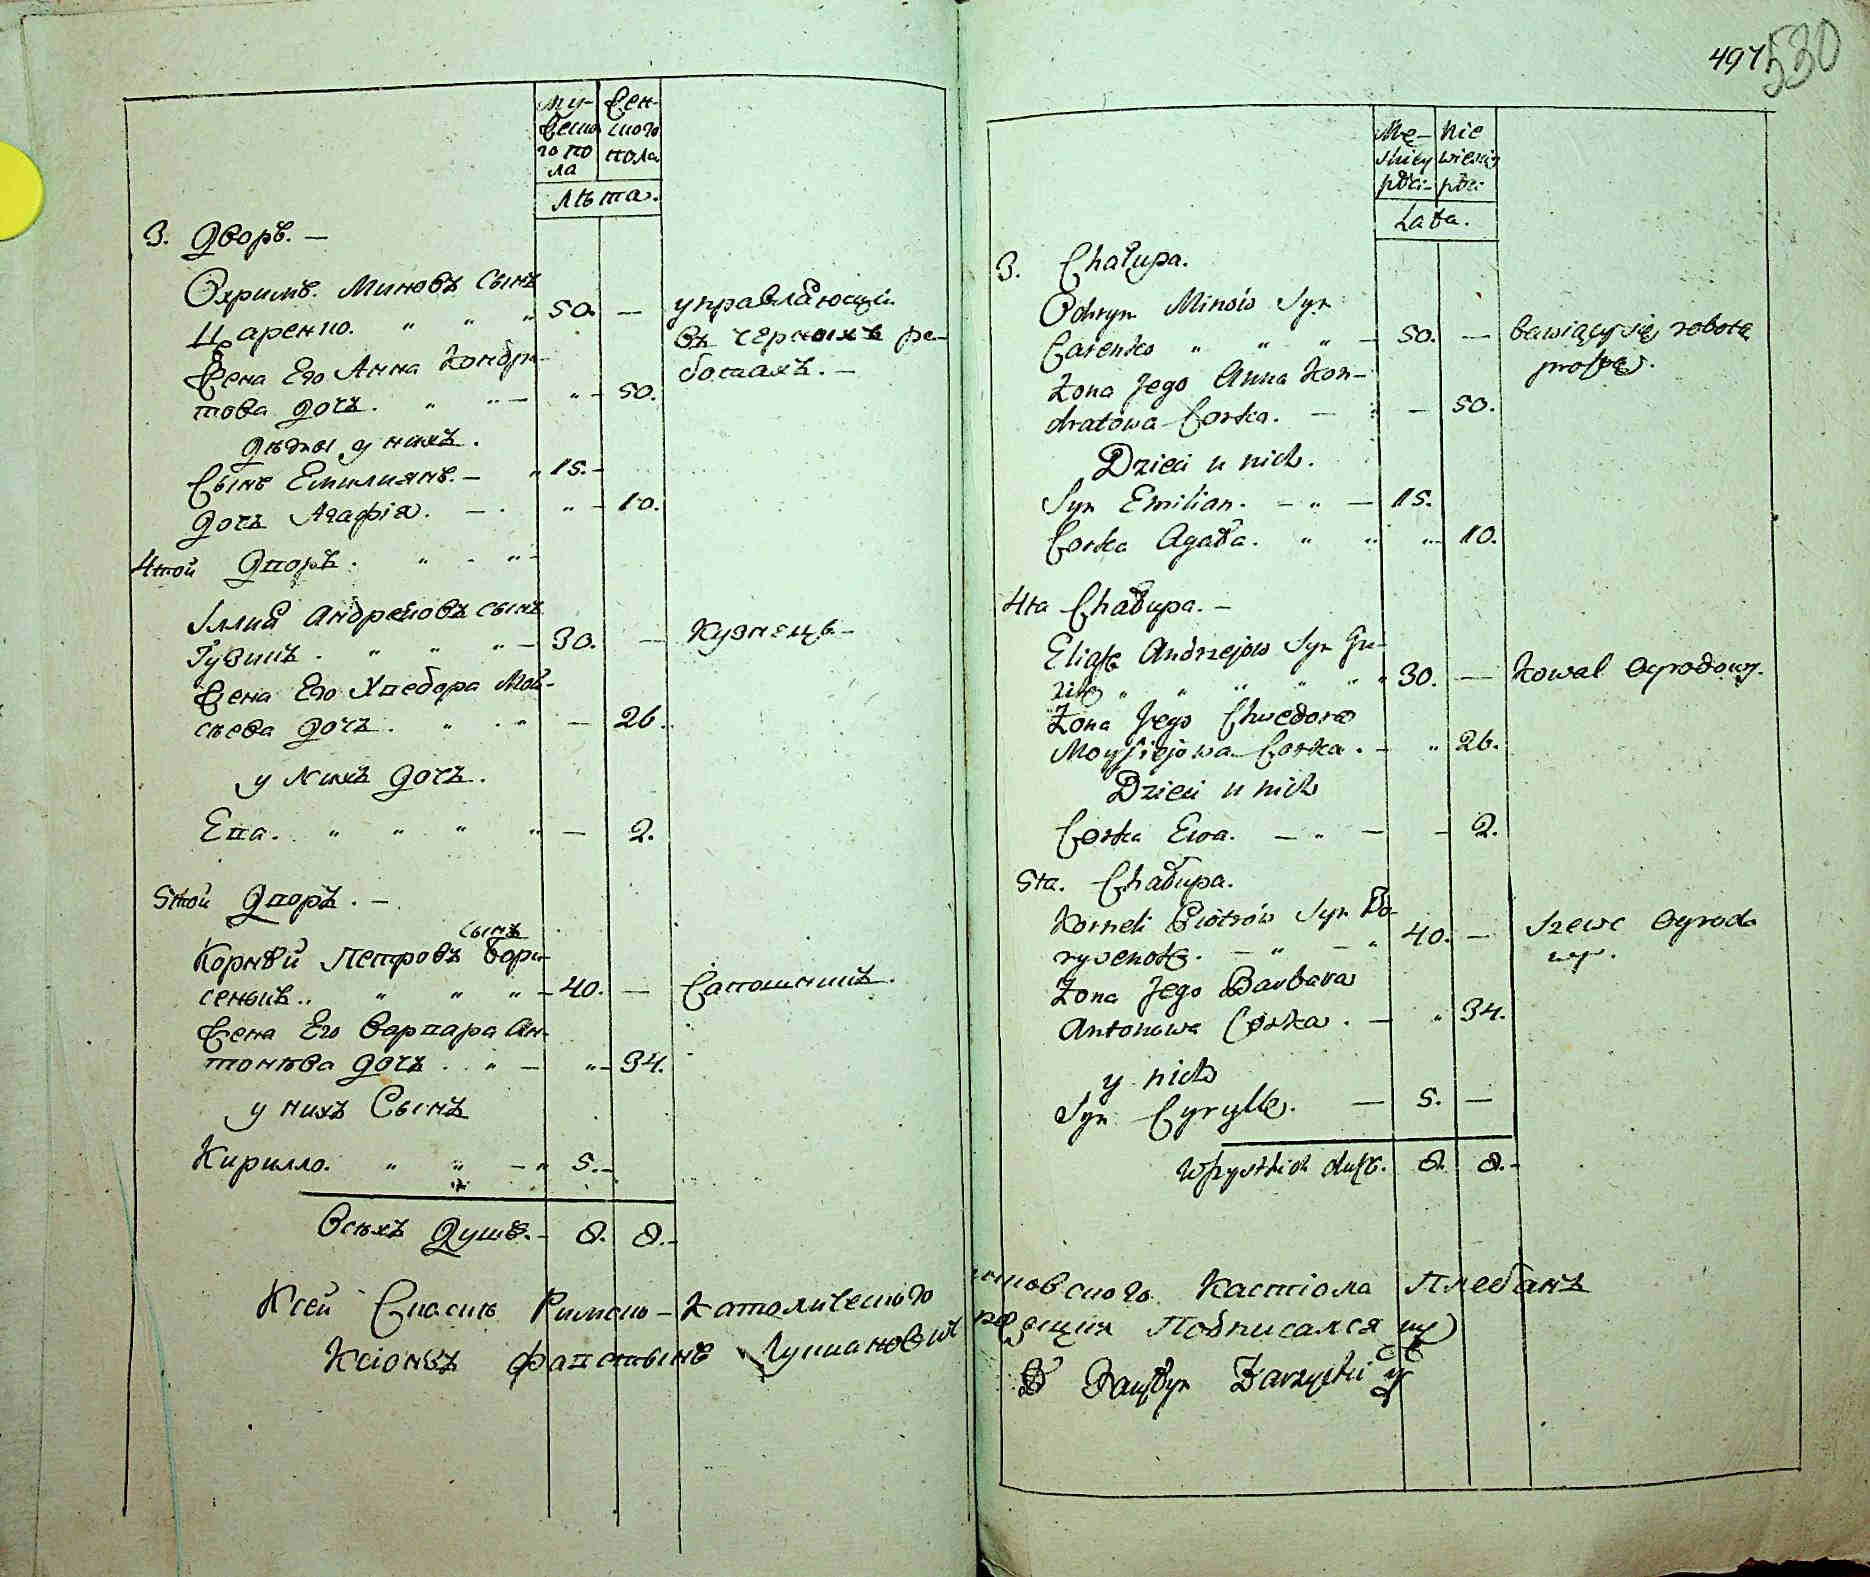 му-
жеско
го по
ла
жен-
ского
пола
лѣта.
3. Дворъ. —
Охримъ Миновъ сынъ
Царенко. " " " 50. —
управляющій
въ черныхъ ра-
ботахъ. —
Жена Его Анна Кондра-
това дочь. " " — " — 50.
Дѣты у нихъ.
Сынъ Емилиянъ. — " 15. —
Дочь Агафія. — . " — 10.
4той Дворъ. " - " —
Иллия Андреювъ сынъ
" " " — 30. — Кузнецъ —
Жена Его Хведора Мой-
сѣева дочь. " . " — 26.
у нихъ дочь.
Ева. " " " " — 2.
5той Дворъ. —
сынъ
Корнѣй Петровъ Бори-
сенокъ.. " " " — 40. — Сапошникъ.
Жена Его Варвара Ан-
тонѣва дочь . . " — " — 34.
у нихъ Сынъ
Кирилло. " " — " 5. —
Всѣхъ Душъ. — 8. 8. —
497 530
Mę-
skiey
płci-
nie
wieskiy
płci-
Lata.
3. Chałupa.
Ochrym Minów Syn
Carenko " " " — 50. — bawiący się robotą
prostą.
Żona Jego Anna Kon-
dratowa Corka. — " — 50.
Dzieci u nich.
Syn Emilian. — " — 15.
Corka Agata. " " " — 10.
4ta Chałupa. —
Eliasz Andrzejow Syn Gu-
" " " " " 30. — Kowal Ogrodowy.
Żona Jego Chwedora
Moysiejowa Corka. — " 26.
Dzieci u nich
Corka Ewa. — " — — 2.
5ta. Chałupa.
Korneli Piotrów Syn Bo-
rysenok. — " — " 40. — Szewc Ogrodo
wy.
Żona Jego Barbara
Antonowa Corka. — " 34.
y nich
Syn Cyryll. — 5. —
Wszystkich dusz. 8. 8. —
Ксей Списокъ Римско-Католическаго Костіола Плебанъ
Ксіондзъ Фавстынъ Подписался
X Faustyn